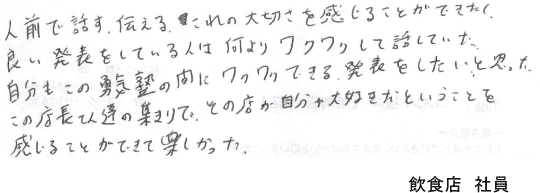 人前で話す、伝える、これの大切さを感じることができた。
良い発表をしている人は何よりワクワクして話していた。
自分もこの勇気塾の間にワクワクできる発表をしたいと思った。
この店長て人達の集まりで、その店が自分が大好きだということを
感じることができて楽しかった。
飲食店 社員